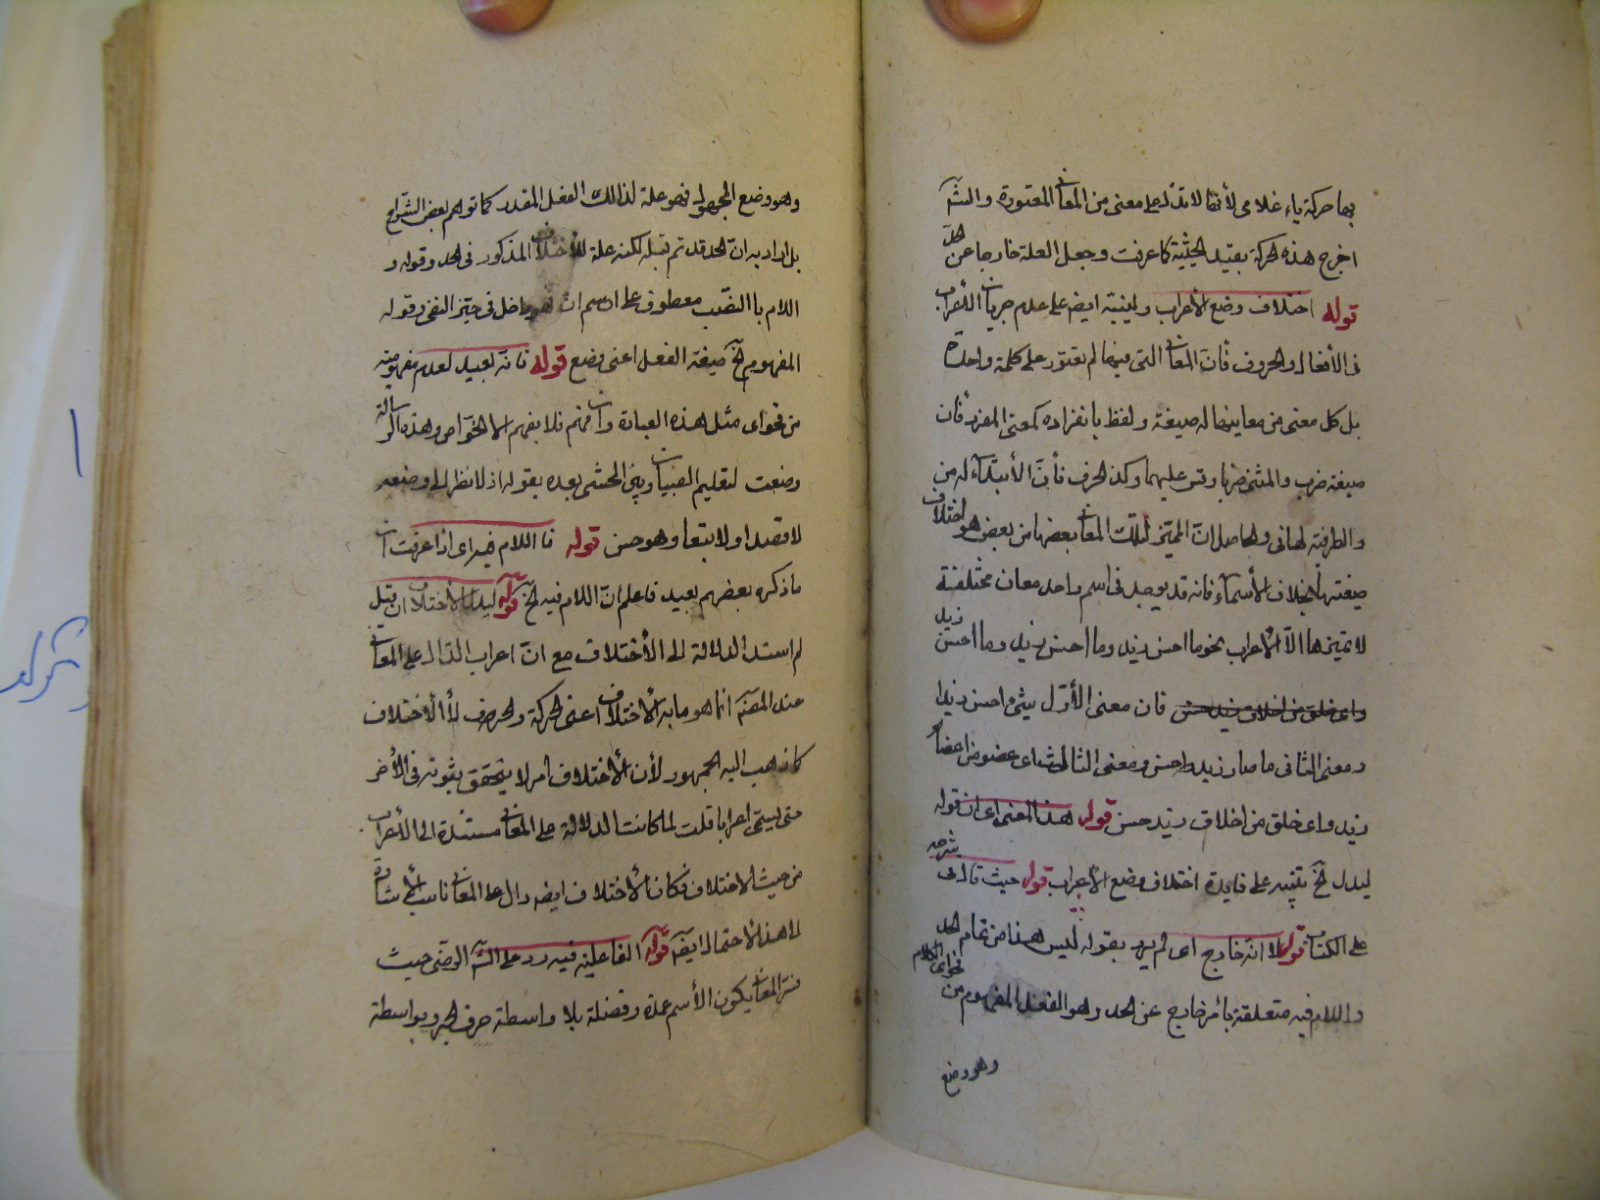 بها حركة ياء غلامى لأنها لا تدل على معنى من المعانى المعتورة والشّه
اخرج هذه الحركة بقيد الحيثية كما عرفت وجعل العلة خارجا عن الحدّ
قوله اختلاف وضع الأعراب ولينبه ايضا على عدم جريان الأعراب
فى الأفعال والحروف فأن المعانى التى فيهما لم تعتور على كلمة واحدة
بل كل معنى من معانيهما له صيغة ولفظ بانفراده كمعنى المفرد فان
صيغة ضرب والمثنى ضربا وقس عليهما وكذ الحرف فأن الأبتداء له من
والظرفية لها فى والحاصل انّ المميّز لتلك المعانى بعضها من بعض هو اختلاف
صيغتها بخلاف الأسماء فانه قد يوجد فى اسم واحد معان مختلفة
لا تميزها الاّ الأعراب نحو ما احسن زيد وما احسن زيد وما احسن زيد
فان معنى الأوّل شئ احسن زيدا
ومعنى الثانى ما صار زيد ذا حسن ومعنى الثالث اى عضو من اعضاء
زيد واى خلق من اخلاق زيد حسن قوله هذا المعنى اى ان قوله
ليدل الخ تنبيه على فايدة اختلاف وضع الأعراب قوله حيث قال فى شرحه
على الكتاب قوله لا انه خارج اى لم يرد بقوله ليس هذا من تمام الحد
واللام فيه متعلقة بأمر خارج عن الحد وهو الفعل المفهوم من فحواى الكلام
وهو وضع
وهو وضع المجهول فهو علة لذالك الفعل المقدر كما توهم بعض الشرّاح
بل اراد به انّ الحد قد تم قبله لكنه علة للأختلاف المذكور فى الحد وقوله و
اللام باالنصّب معطوف على اسم انّ فهو داخل فى حيّز النفى وقوله
المفهوم الخ صيغة الفعل اعنى وضع قوله فانه بعيد لعدم مفهوميته
من فحواى مثل هذه العبارة وان فهم فلا يفهم الاّ الخوّاص وهذه الرسالة
وضعت لتعليم الصبيان وبيّن المحشى بعده بقوله اذ لا نظر الى وضعه
لا قصدا ولا تبعا وهو حسن قوله فا اللام فيه اى اذا عرفت ان
ما ذكره بعضهم بعيد فاعلم انّ اللام فيه الخ قوله ليدل الأختلاف ان قيل
لم اسند الدلالة الى الأختلاف مع انّ اعراب الدّال على المعانى
عند المصنّف انما هو ما به الأختلاف اعنى الحركة والحرف لا الأختلاف
كما ذهب اليه الجمهور لأن الأختلاف امر لا يتحقق ثبوته فى الأخر
حتى يسمّى اعرابا قلت لما كانت الدلالة على المعانى مستندة الى الأعراب
من حيث الاختلاف فكان الأختلاف ايضا دال على المعانى ناسب الأشارة
الى هذا الأحتمال ايضا قوله الفاعلية فيه رد على الشّه الرضى حيث
فسّر المعانى بكون الأسم عمدة وفضلة بلا واسطة حرف الجر وبواسطة